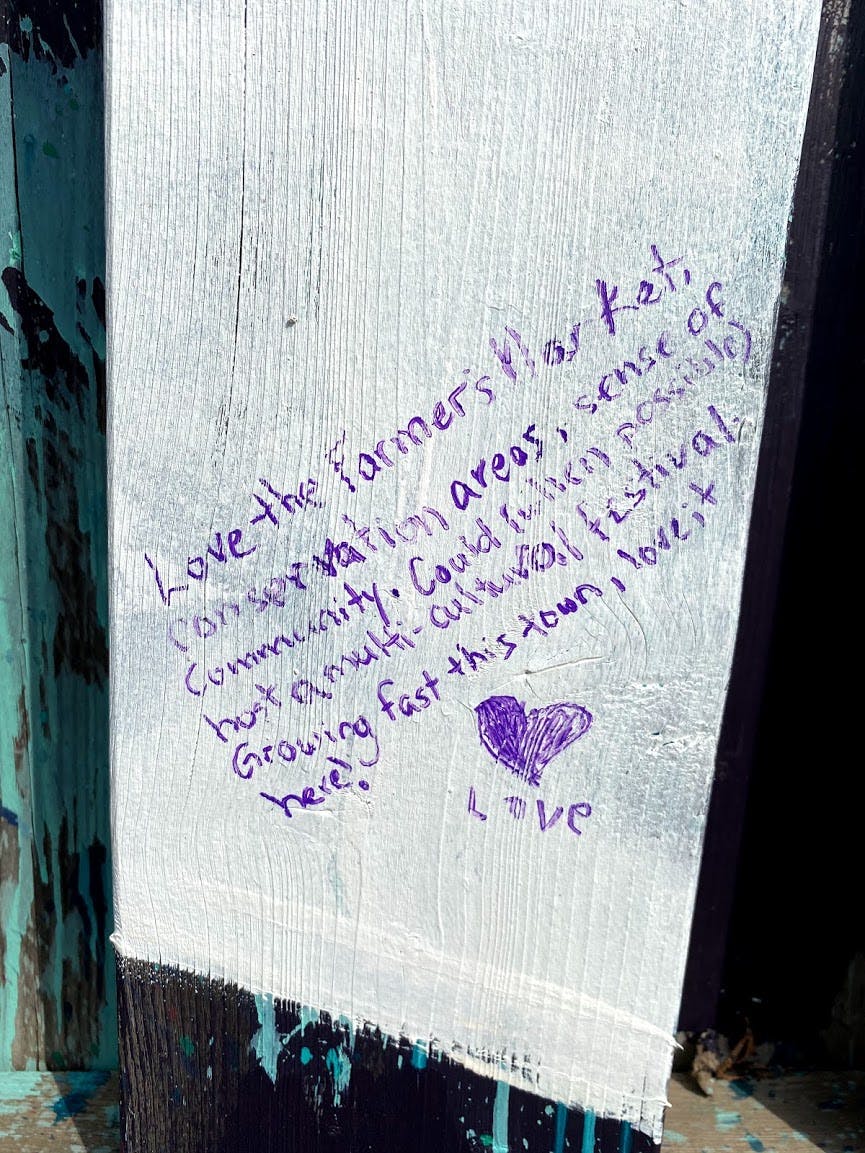 Love the Farmer's Market,
conservation areas, sense of
Community. Could (when possible)
host a multi-cultural festival.
Growing fast this town, love it
here!
Love